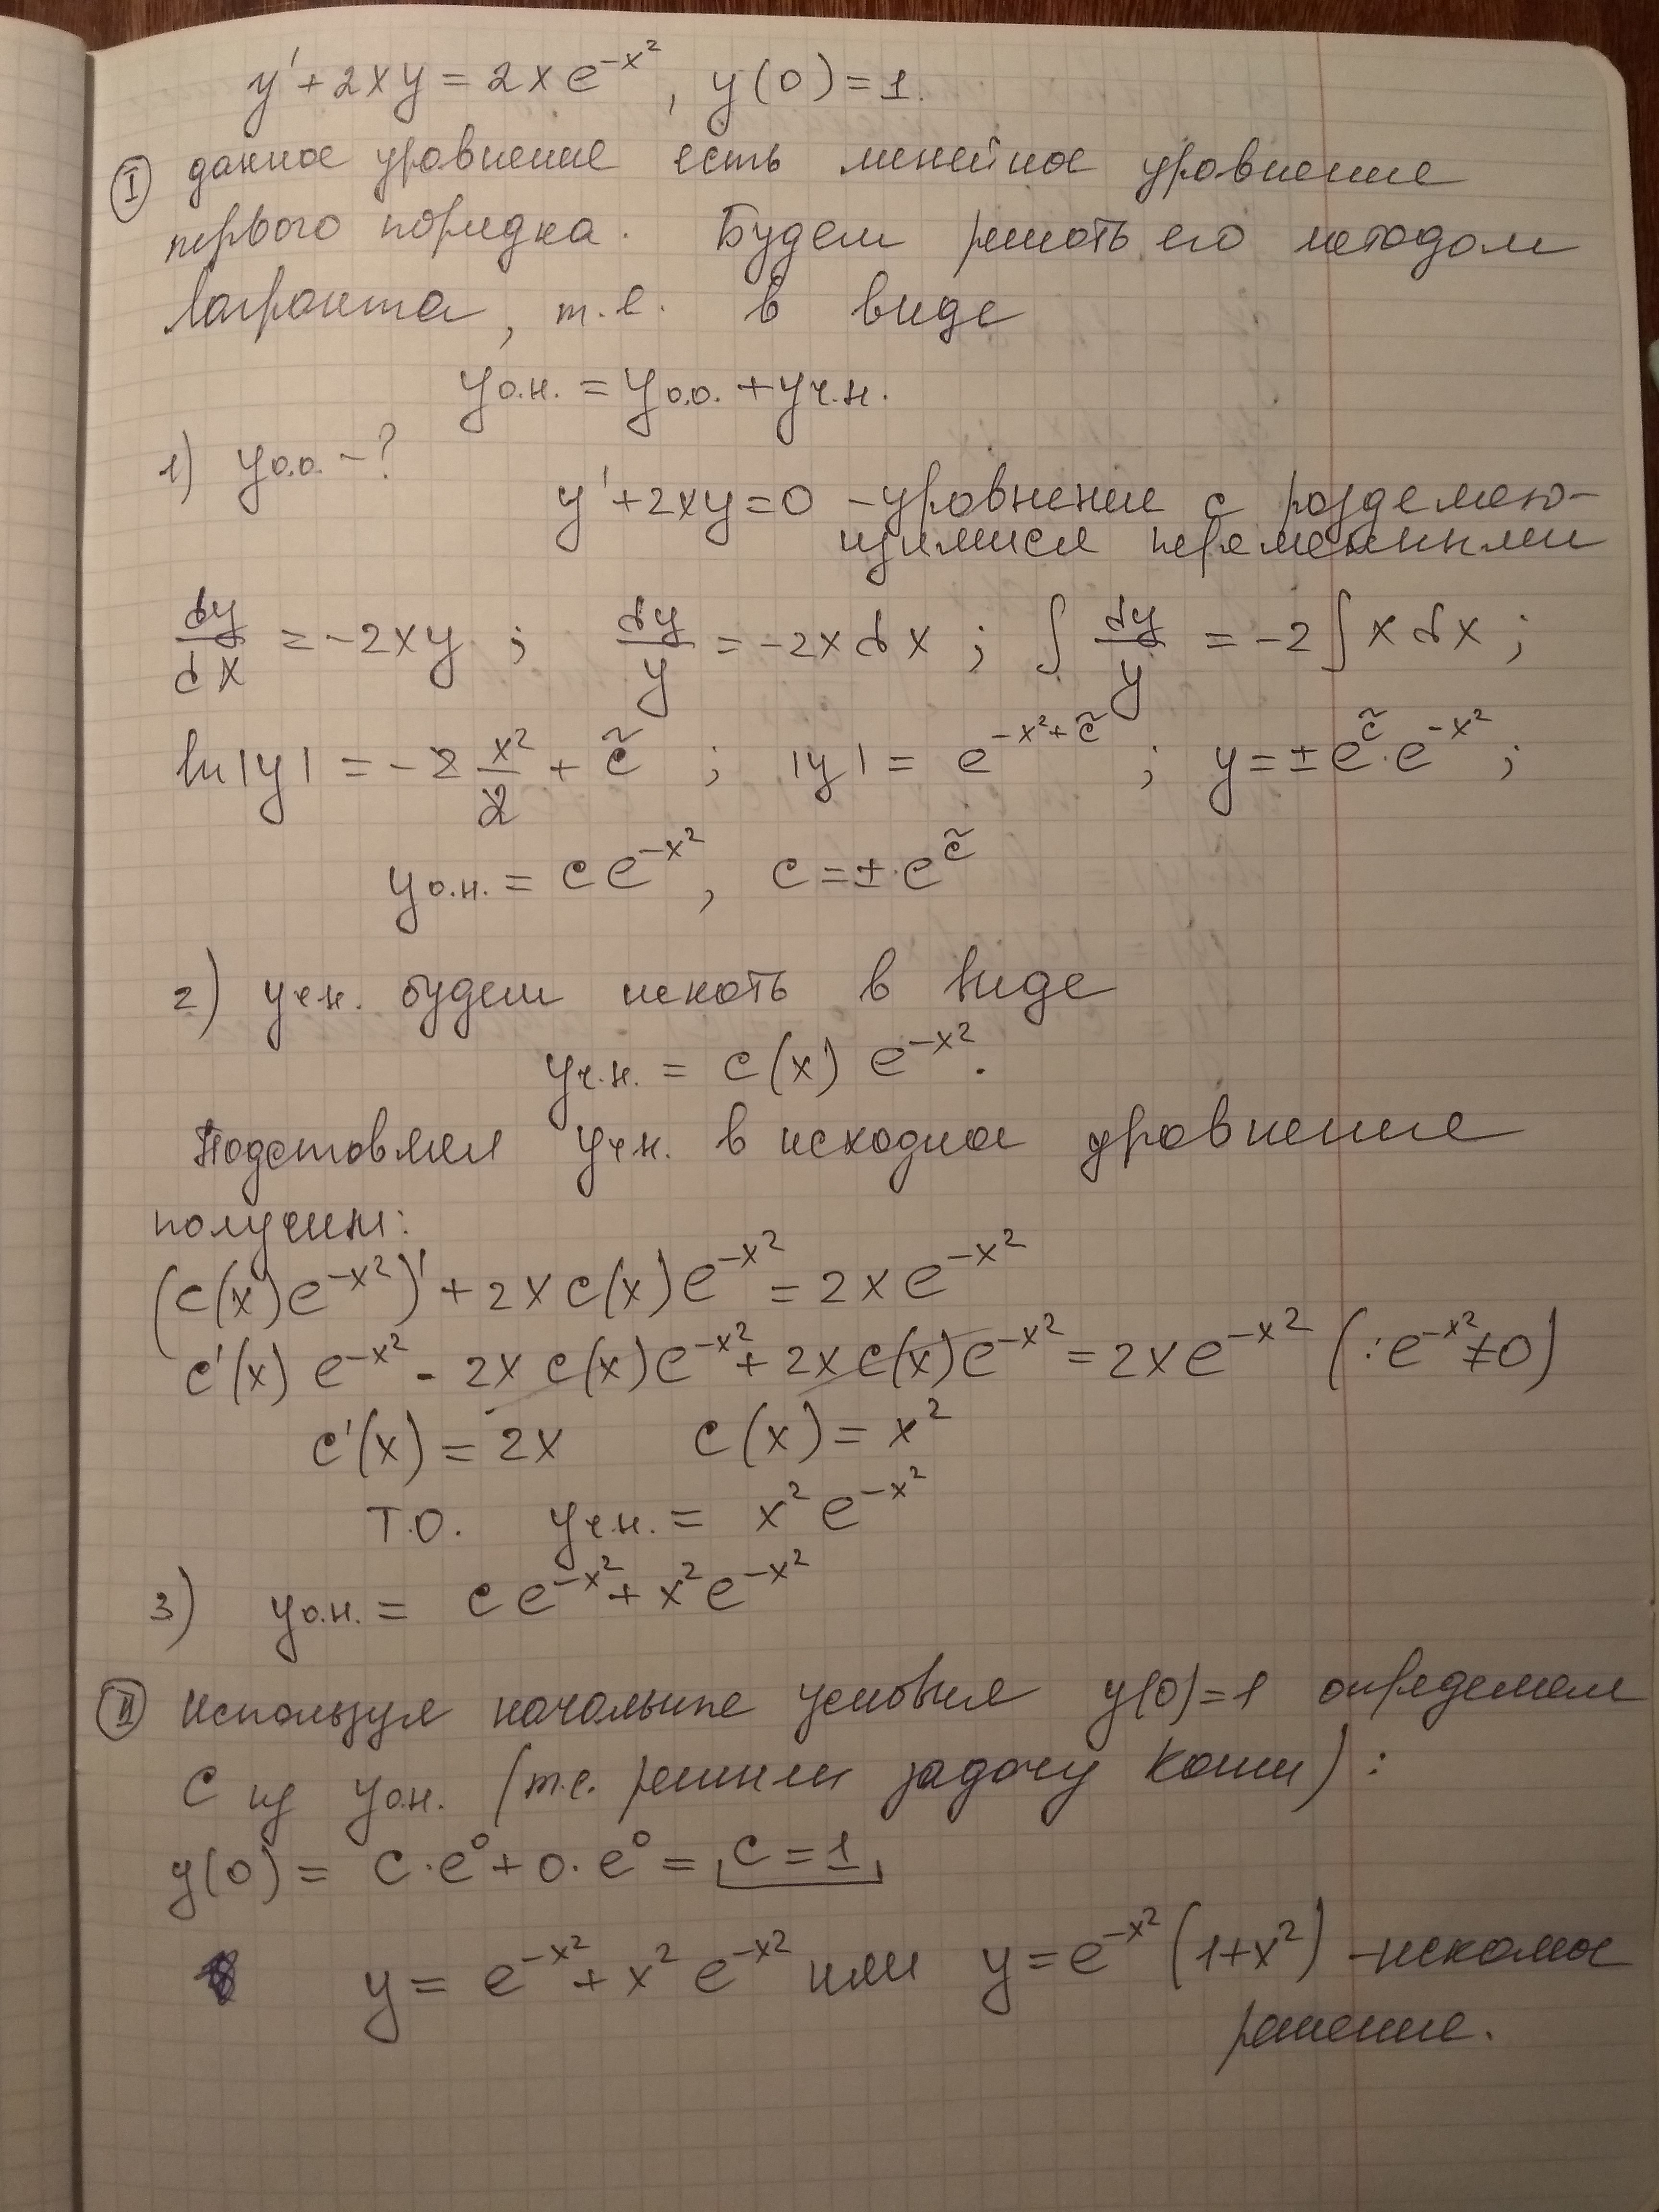 y' + 2xy = 2xe^{-x^2}, y(0) = 1.
Ⓘ данное уравнение есть линейное уравнение
первого порядка. Будем решать его методом
Лагранжа, т.е. в виде
y_{о.н.} = y_{о.о.} + y_{ч.н.}
1) y_{о.о.} - ?
y' + 2xy = 0 - уравнение с разделяю-
щимися переменными
dy/dx = -2xy ; dy/y = -2x dx ; ∫ dy/y = -2 ∫ x dx ;
ln|y| = -2 x^2/2 + c̃ ; |y| = e^{-x^2 + c̃} ; y = ± e^{c̃} · e^{-x^2} ;
y_{о.н.} = c e^{-x^2}, c = ± e^{c̃}
2) y_{ч.н.} будем искать в виде
y_{ч.н.} = c(x) e^{-x^2}.
Подставляя y_{ч.н.} в исходное уравнение
получим:
(c(x)e^{-x^2})' + 2x c(x)e^{-x^2} = 2xe^{-x^2}
c'(x) e^{-x^2} - 2x c(x)e^{-x^2} + 2x c(x)e^{-x^2} = 2xe^{-x^2} (: e^{-x^2} ≠ 0)
c'(x) = 2x c(x) = x^2
Т.О. y_{ч.н.} = x^2 e^{-x^2}
3) y_{о.н.} = c e^{-x^2} + x^2 e^{-x^2}
Ⓘ︎Ⓘ Используя начальные условия y(0)=1 определяем
C из y_{о.н.} (т.е. решим задачу Коши):
y(0) = C·e^0 + 0·e^0 = C = 1
y = e^{-x^2} + x^2 e^{-x^2} или y = e^{-x^2} (1+x^2) - искомое
решение.